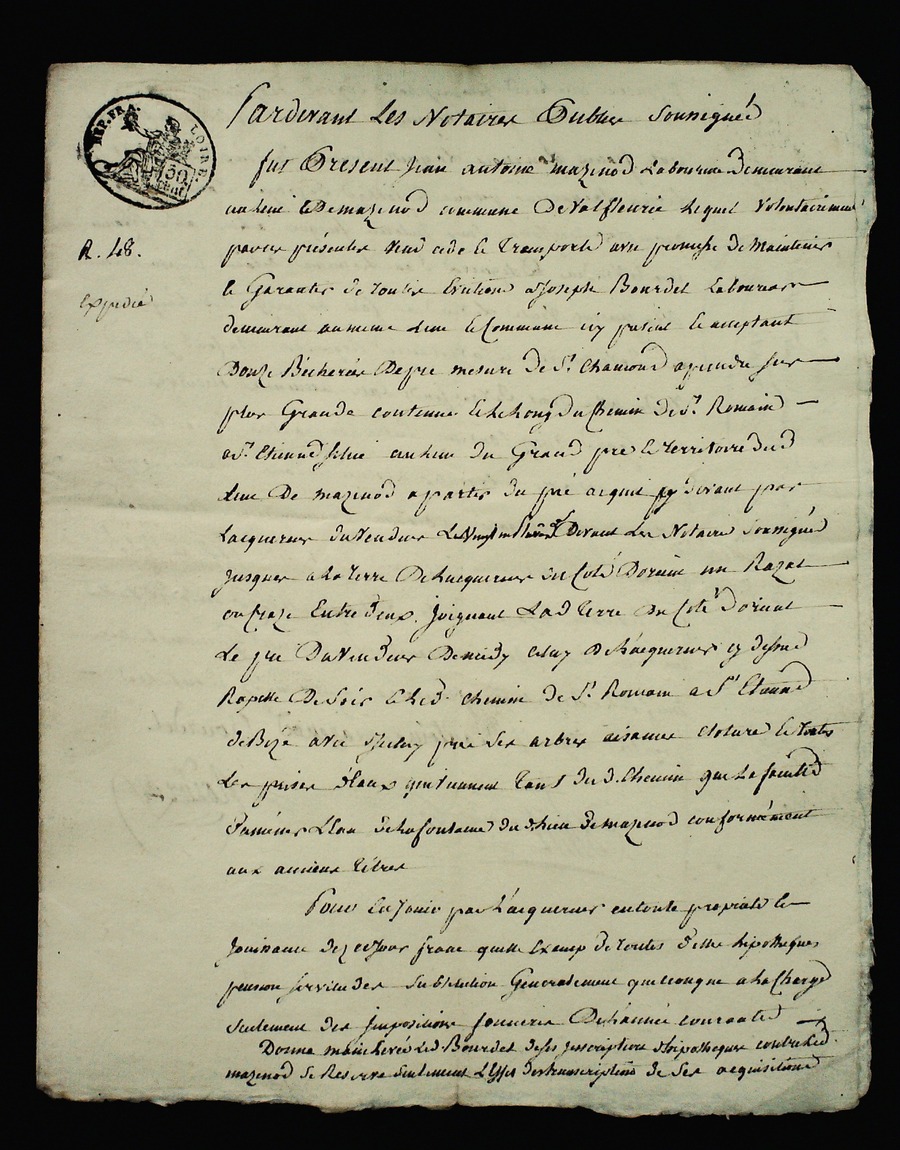 REP. FRA.
LOIRE.
50
cent
Pardevant Les Notaires Publics Soussignés
fut Present Jean antoine mazenod Laboureur Demeurant
au Lieu de mazenod commune De Valfleurie Lequel Volontairement
R. 48.
par ces présentes Vend cede et transporte avec promesse de Maintenir
Expedié
et Garantir de toutes Evictions a Joseph Bourdet Laboureur
demeurant au meme Lieu et Commune icy present et acceptant
Douze Bicherées De pré mesure de St. Chamond a prendre sur
plus Grande contenue et Le Long du Chemin de St. Romain
a St. Etienne scitué au Lieu du Grand pré et territoire dud
Lieu De mazenod a partir du pré acquis cy devant par
Lacquereur du Vendeur Devant Les Notaire Soussignés
Jusques a La terre De Lacquereur du Coté Dorient un Razat
ou Craze Entre Deux. Joignant La d terre du Coté Dorient
Le pré Du Vendeur De midy celuy De Lacquereur cy dessus
Rapellé De Soir et Led. chemin de St. Romain a St. Etienne
de Bize avec Iceluy pré Ses arbres aisances cloture et toutes
Les prises d'Eaux qui viennent tant du d. Chemin que La faculté
Damener L'Eau de La fontaine du d. Lieu de mazenod conformément
aux anciens titres
Pour En Jouir par Lacquereur en toute propriété et
Jouissance dez ce Jour franc quitte Exemp de toutes dettes hipotheques
pension servitudes Substitution Generalement quelconque a La Charge
Seulement des Impositions foncieres De Lannée courante
Donne main Levée Led. Bourdet de ses Inscriptions d'hipotheques contre Led.
mazenod Se Reserve Seulement L'Effet des transcriptions de Ses acquisitions